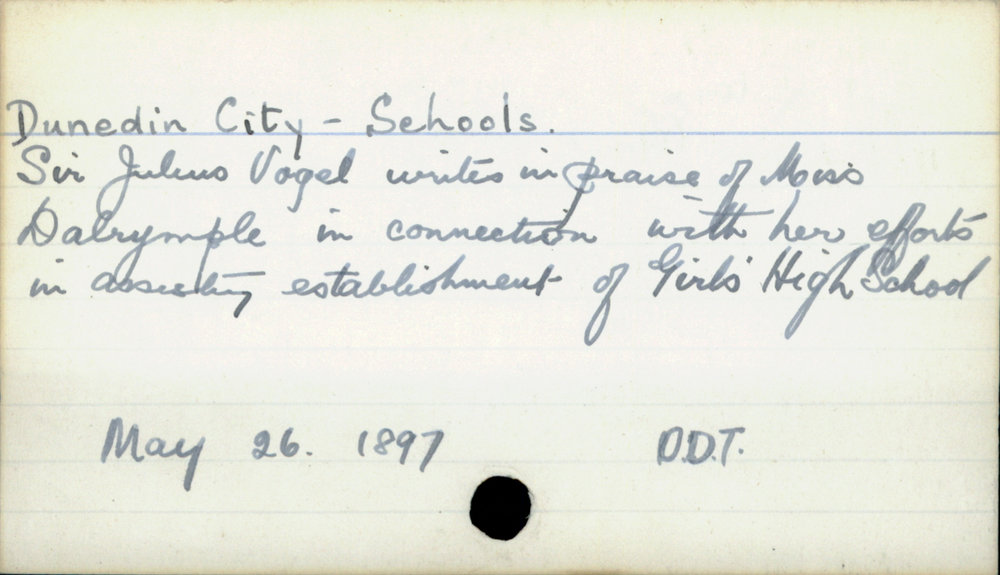 Dunedin City - Schools.
Sir Julius Vogel writes in praise of Miss
Dalrymple in connection with her efforts
in assisting establishment of Girls' High School
May 26. 1897 O.D.T.